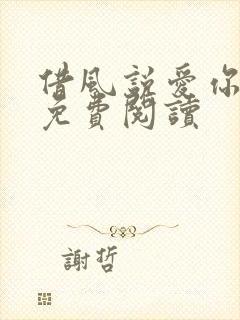 借風說愛你
免費閱讀
謝哲